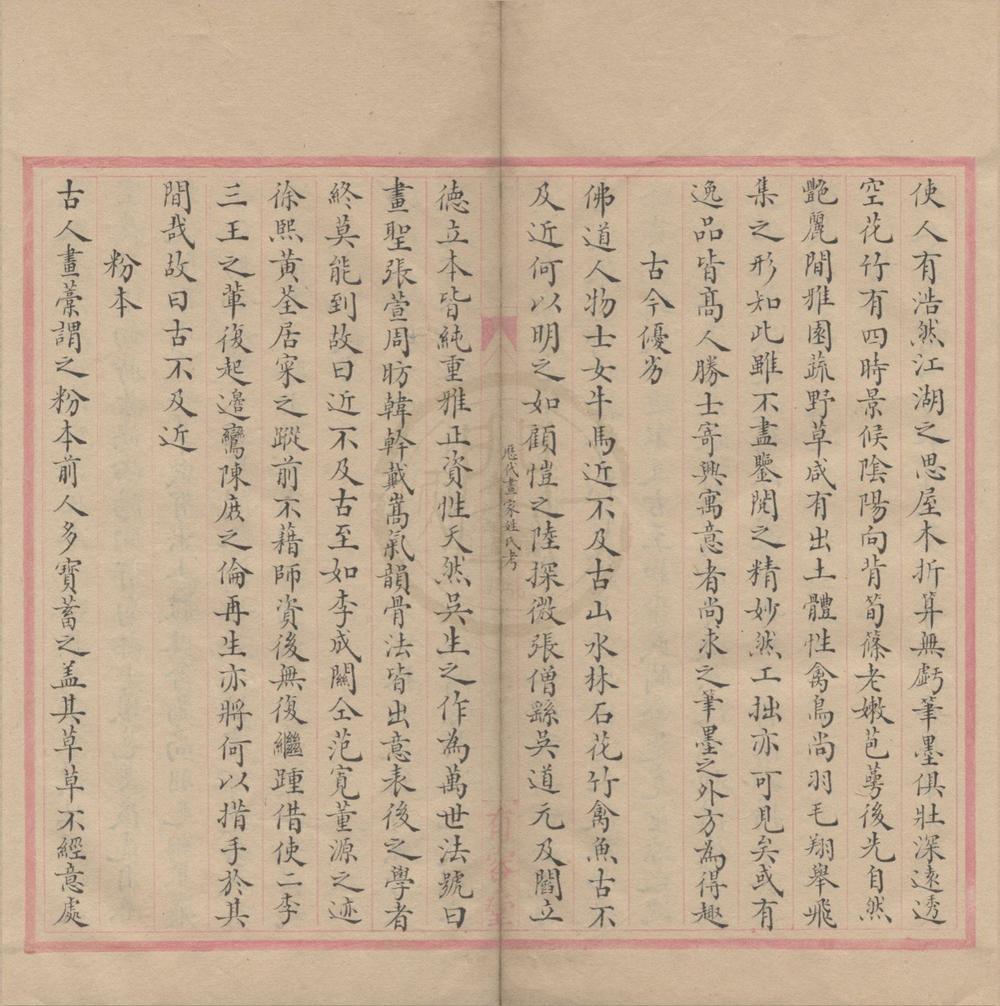 使人有浩然江湖之思屋木折算無虧筆墨俱壯深遠透
空花竹有四時景候陰陽向背筍篠老嫩芭蕚後先自然
艷麗間雅園蔬野草咸有出土體性禽鳥尚羽毛翔舉飛
集之形知此雖不盡鑒閱之精妙然工拙亦可見矣或有
逸品皆高人勝士寄興寓意者尚求之筆墨之外方為得趣
古今優劣
佛道人物士女牛馬近不及古山水林石花竹禽魚古不
及近何以明之如顧愷之陸探微張僧繇吳道元及閻立
歷代畫家姓氏考
德立本皆純重雅正資性天然吳生之作為萬世法號曰
畫聖張萱周昉韓幹戴嵩氣韻骨法皆出意表後之學者
終莫能到故曰近不及古至如李成關仝范寬董源之迹
徐熙黃荃居寀之蹤前不藉師資後無復繼踵借使二李
三王之輩復起邊鸞陳庶之倫再生亦將何以措手於其
間哉故曰古不及近
粉本
古人畫藁謂之粉本前人多寶蓄之盖其草草不經意處